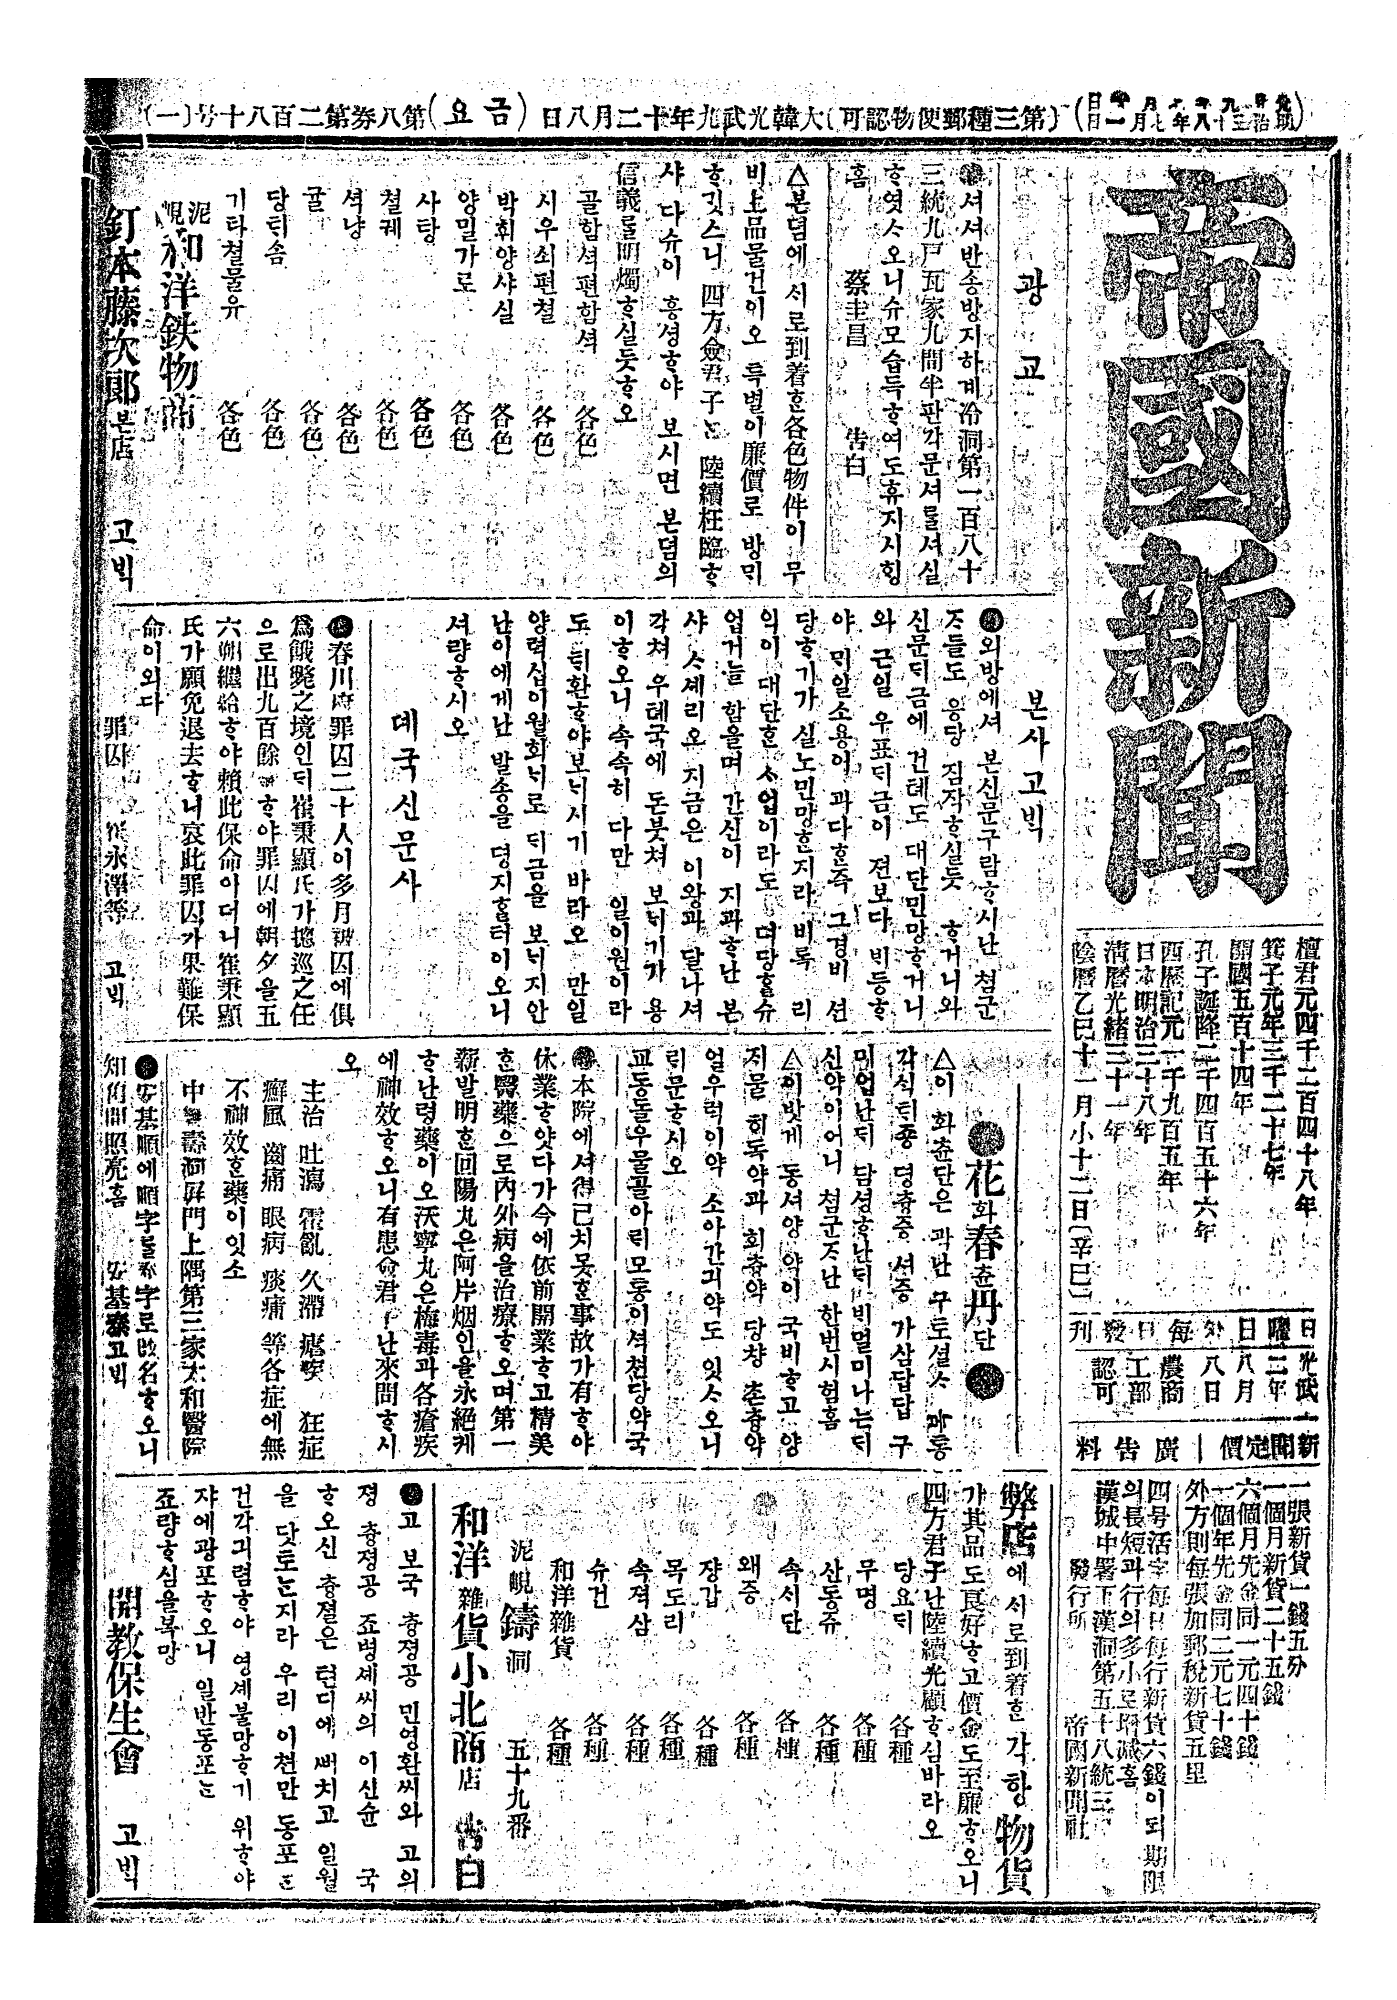 (一) 第八券第二百八十号 (금요) 大韓光武九年十二月八日 (第三種郵便物認可)
帝國新聞
檀君元四千二百四十八年
箕子元年三千二十七年
開國五百十四年
孔子誕降二千四百五十六年
西曆記元一千九百五年
日本明治三十八年
淸曆光緖三十一年
陰曆乙巳十一月小十二日(辛巳)
日曜日外每日發刊
光武二年八月八日農商工部認可
新聞定價 廣告料
一張新貨一錢五分
一個月新貨二十五錢
六個月先金同一元四十錢
一個年先金同二元七十錢
外方則每張加郵稅新貨五里
四号活字每日每行新貨六錢이되期限
의長短과行의多小로增减홈
漢城中署下漢洞第五十八統三
發行所 帝國新聞社
광고
셔셔반송방지하계冷洞第一百八十
三統九戶瓦家九間半판각문셔를셔실
ᄒᆞ엿ᄉᆞ오니슈모습득ᄒᆞ여도휴지시힝
홈 蔡圭昌 告白
△본뎜에셔로到着ᄒᆞᆫ各色物件이무
비上品물건이오 특별이廉價로 방ᄆᆡ
ᄒᆞ깃스니 四方僉君子ᄂᆞᆫ 陸續枉臨ᄒᆞ
샤 다슈이 흥셩ᄒᆞ야 보시면 본뎜의
信義를明燭ᄒᆞ실듯ᄒᆞ오
골함셕편함셕 各色
시우쇠편철 各色
박휘양샤실 各色
양밀가로 各色
사탕 各色
철궤 各色
셕냥 各色
귤 各色
당ᄃᆡ솜 各色
기타철물유 各色
泥峴 和洋鉄物商
釘本藤次郞 본店 고ᄇᆡᆨ
본사고ᄇᆡᆨ
외방에셔 본신문구람ᄒᆞ시난 쳠군
ᄌᆞ들도 응당 짐작ᄒᆞ실듯 ᄒᆞ거니와
신문ᄃᆡ금에 건톄도 대단민망ᄒᆞ거니
와 근일 우표ᄃᆡ금이 젼보다 비등ᄒᆞ
야 ᄆᆡ일소용이 과다ᄒᆞᆫ즉 그경비 션
당ᄒᆞ기가 실노민망ᄒᆞᆫ지라 비록 리
익이 대단ᄒᆞᆫ ᄉᆞ업이라도 뎌당ᄒᆞᆯ슈
업거늘 함을며 간신이 지과ᄒᆞ난 본
샤 ᄉᆞ셰리오 지금은 이왕과 달나셔
각쳐 우톄국에 돈붓쳐 보ᄂᆡ기가 용
이ᄒᆞ오니 속속히 다만 일이원이라
도 ᄃᆡ환ᄒᆞ야보ᄂᆡ시기 바라오 만일
양력십이월회ᄂᆡ로 ᄃᆡ금을 보ᄂᆡ지안
난이에게난 발송을 뎡지ᄒᆞᆯ터이오니
셔량ᄒᆞ시오
뎨국신문사
春川府罪囚二十人이多月被囚에俱
爲餓斃之境인ᄃᆡ崔秉顯氏가揔巡之任
으로出九百餘 ᄒᆞ야罪囚에朝夕을五
六朔繼給ᄒᆞ야賴此保命이더니崔秉顯
氏가願免退去ᄒᆞ니哀此罪囚가果難保
命이외다
罪囚 永澤等 고ᄇᆡᆨ
花화春츈丹단
△이 화츈단은 곽난 구토셜ᄉᆞ 마통
각식ᄃᆡ죵 뎡츙증 셔증 가삼답답 구
ᄆᆡ업난ᄃᆡ 담셩ᄒᆞ난ᄃᆡ ᄇᆡ멀미나는ᄃᆡ
신약이어니 쳠군ᄌᆞ난 한번시험홈
△이밧게 동셔양 약이 국비ᄒᆞ고 양
지물 회독약과 회츙약 당챵 촌츙약
얼우럭이약 소아간긔약도 잇ᄉᆞ오니
ᄅᆡ문ᄒᆞ시오
교동돌우물골아ᄅᆡ모통이셔쳔당약국
本院에셔得已치못ᄒᆞᆫ事故가有ᄒᆞ야
休業ᄒᆞ얏다가今에依前開業ᄒᆞ고精美
ᄒᆞᆫ醫藥으로內外病을治療ᄒᆞ오며第一
新발明ᄒᆞᆫ回陽丸은阿片烟인을永絶케
ᄒᆞ난령藥이오沃寧丸은梅毒과各瘡疾
에神效ᄒᆞ오니有患僉君子난來問ᄒᆞ시
오
主治 吐瀉 霍亂 久滯 瘧疾 狂症
癬風 齒痛 眼病 痰痛 等各症에無
不神效ᄒᆞᆫ藥이잇소
中署壽洞屛門上隅第三家太和醫院
安基順에順字를泰字로改名ᄒᆞ오니
知舊間照亮홈 安基泰고ᄇᆡᆨ
弊店에셔로到着ᄒᆞᆫ각항物貨
가其品도良好ᄒᆞ고價金도至廉ᄒᆞ오니
四方君子난陸續光顧ᄒᆞ심바라오
당요ᄃᆡ 各種
무명 各種
산동쥬 各種
속셔단 各種
왜증 各種
쟝갑 各種
목도리 各種
속젹삼 各種
슈건 各種
和洋雜貨 各種
泥峴鑄洞 五十九番
和洋雜貨小北商店 告白
고 보국 츙졍공 민영환씨와 고의
졍 츙졍공 죠병셰씨의 이신슌 국
ᄒᆞ오신 츙졀은 텬디에 ᄲᅦ치고 일월
을 닷토ᄂᆞᆫ지라 우리 이쳔만 동포ᄂᆞᆫ
건각긔렴ᄒᆞ야 영셰불망ᄒᆞ기 위ᄒᆞ야
쟈에광포ᄒᆞ오니 일반동포ᄂᆞᆫ
죠량ᄒᆞ심을복망
開敎保生會 고ᄇᆡᆨ